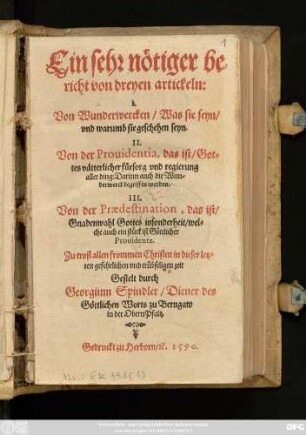 1
Ein sehr nötiger be
richt von dreyen artickeln:
I.
Von Wunderwercken / Was sie seyn/
vnd warumb sie geschehen seyn.
II.
Von der Prouidentia, das ist/ Got-
tes vätterlicher fürsorg vnd regierung
aller ding: Darinn auch die Wun-
derwerck begriffen werden.
III.
Von der Prædestination, das ist/
Gnadenwahl Gottes insonderheit/ wel-
che auch ein stück ist Göttlicher
Prouidentz.
Zu trost allen frommen Christen in dieser letz-
ten gefehrlichen vnd trübseligen zeit
Gestelt durch
Georgium Spindler/ Diener des
Göttlichen Worts zu Berngaw
in der Obern Pfaltz.
Gedruckt zu Herborn/ &c. 1590.